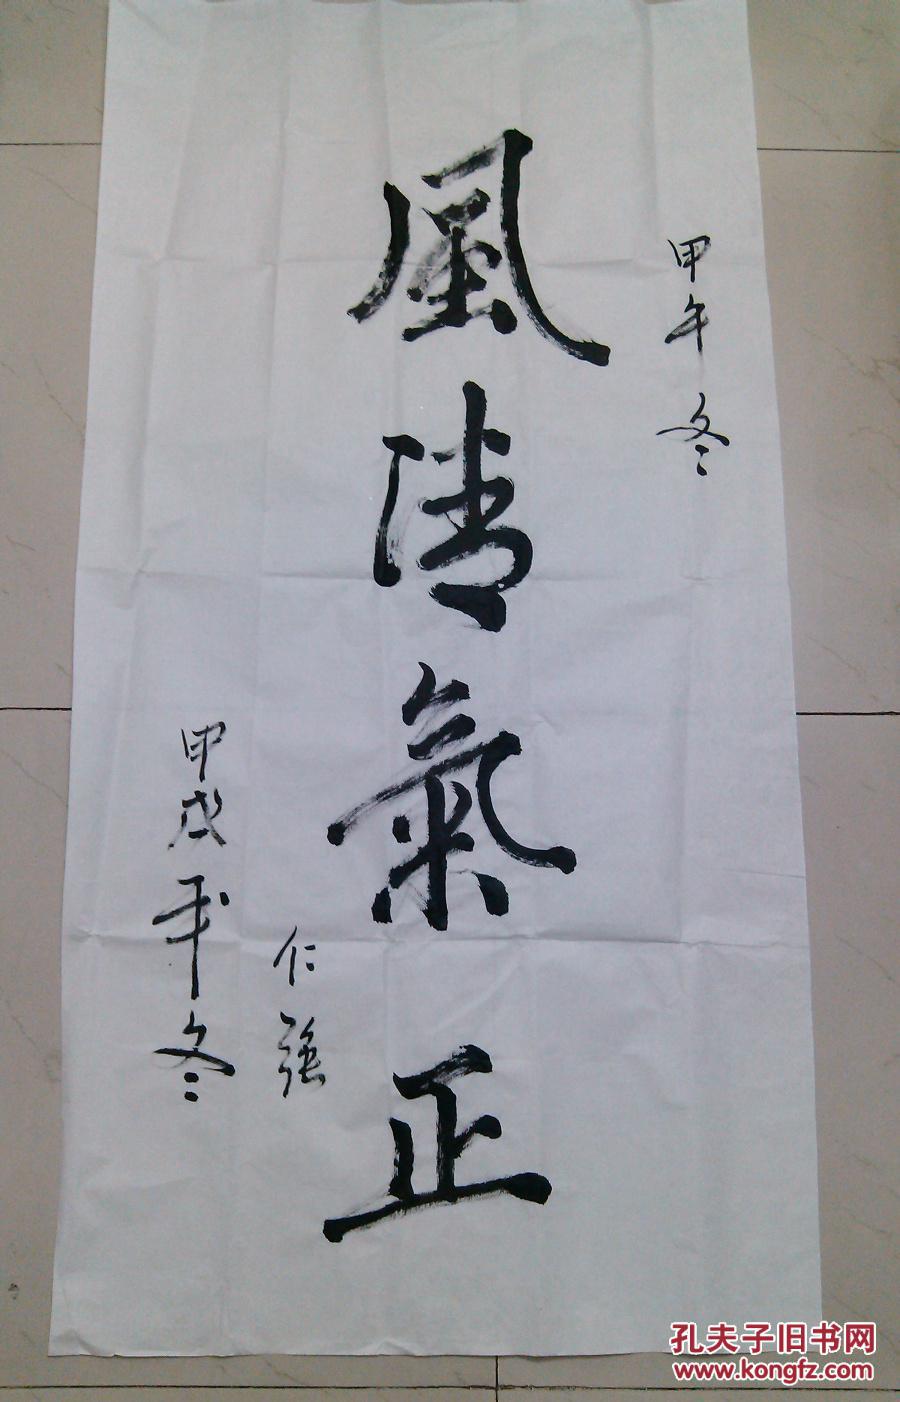 甲午冬
風清氣正
仁強
甲戌年冬
孔夫子旧书网
www.kongfz.com